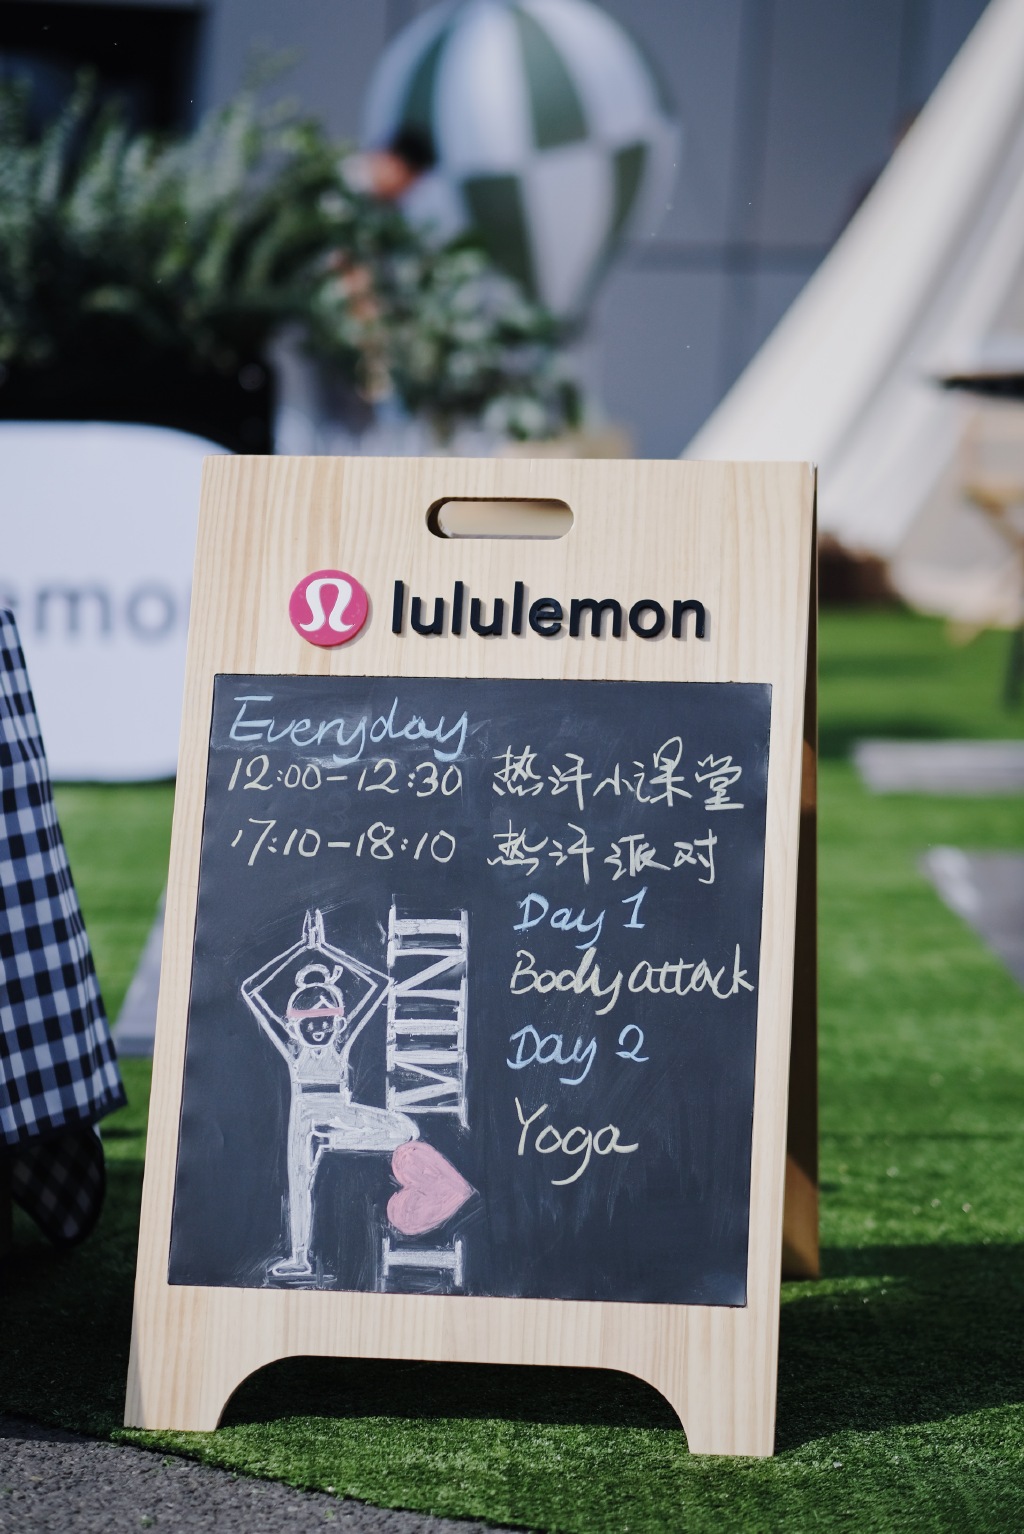 lululemon
Everyday
12:00-12:30 热汗小课堂
17:10-18:10 热汗派对
Day 1
Body attack
Day 2
Yoga
I MINI
emo